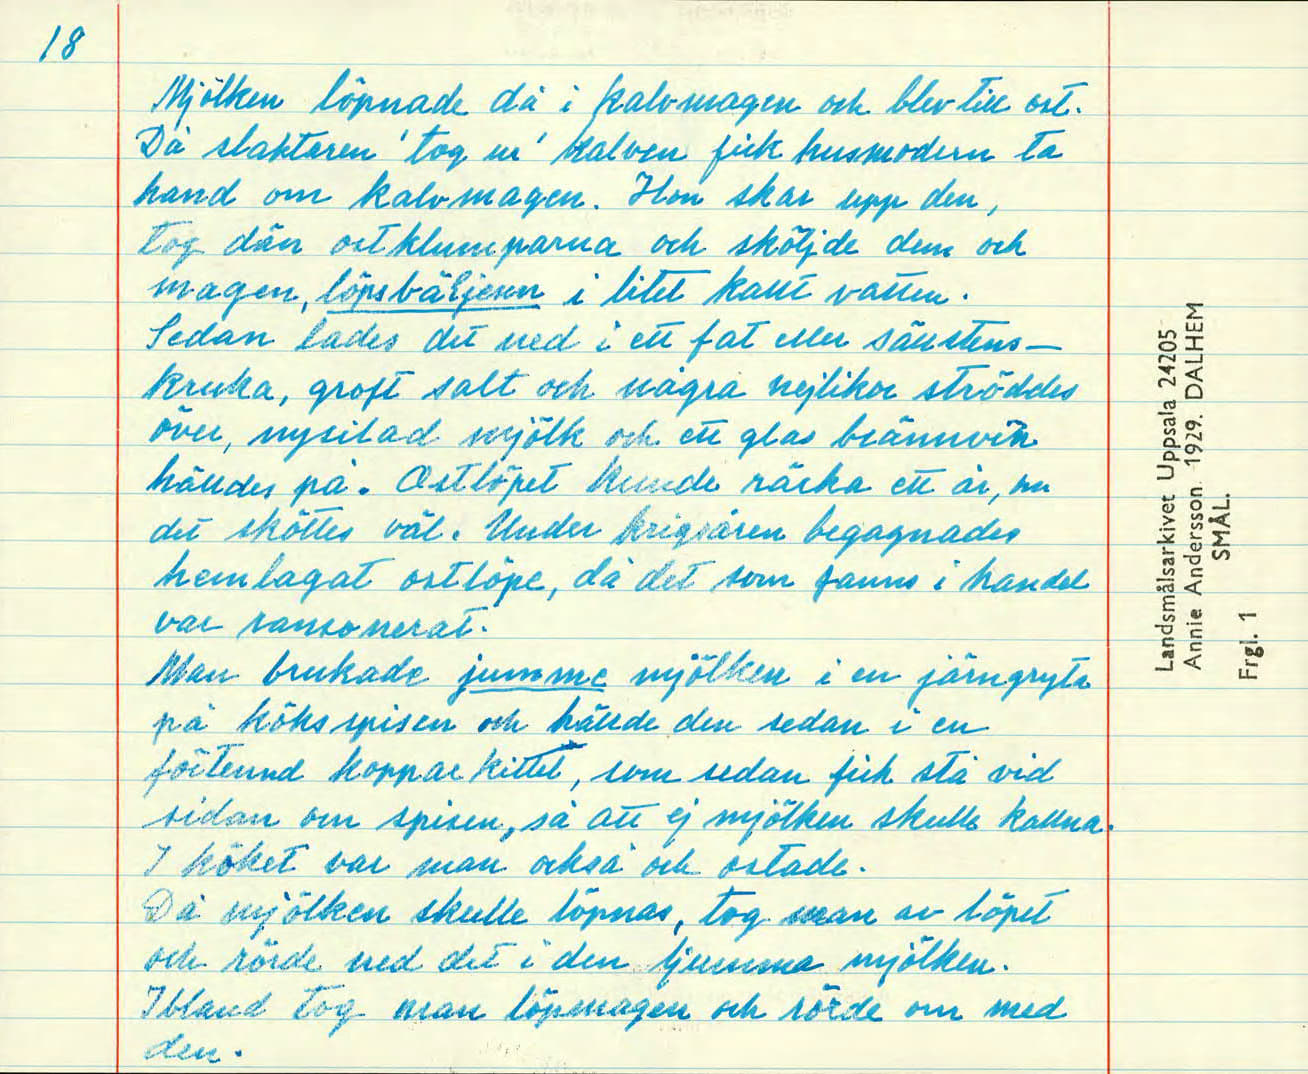 18
Mjölken löpnade då i kalvmagen och blev till ost.
Då slaktaren 'tog ur' kalven fick husmodern ta
hand om kalvmagen. Hon skar upp den,
tog dän ostklumparna och sköljde dem och
magen, löpsbäljenn i litet kallt vatten.
Sedan lades det ned i ett fat eller sältstens-
kruka, groft salt och några nejlikor ströddes
över, nysilad mjölk och ett glas brännvin
hälldes på. Ostlöpet kunde räcka ett år, om
det sköttes väl. Under krigsåren begagnades
hemlagat ostlöpe, då det som fanns i handel
var ransonerat.
Man brukade jumme mjölken i en järngryta
på köksspisen och hällde den sedan i en
förtennd kopparkittel, som sedan fick stå vid
sidan om spisen, så att ej mjölken skulle kallna.
I köket var man också och ostade.
Då mjölken skulle löpnas, tog man av löpet
och rörde ned det i den ljumma mjölken.
Ibland tog man löpmagen och rörde om med
den.
Landsmålsarkivet Uppsala 24205
Annie Andersson. 1929. DALHEM
SMÅL.
Frgl. 1